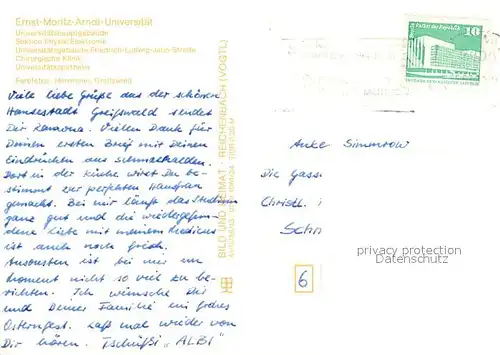 Ernst-Moritz-Arndt-Universität
Universitätshauptgebäude
Sektion Physik/Elektronik
Universitätsgebäude Friedrich-Ludwig-Jahn-Straße
Chirurgische Klinik
Universitätsapotheke
Viele liebe Grüße aus der schönen
Hansestadt Greifswald sendet
Dir Ramona. Vielen Dank für
Deinen ersten Brief mit Deinen
Eindrücken aus Schmalkalden.
Dort in der Küche wirst Du be-
stimmt zur perfekten Hausfrau
gemacht. Bei mir läuft das Studium
ganz gut und die wiedergefun-
dene Liebe mit meinem Medicus
ist auch noch frisch.
Ansonsten ist bei mir im
Moment nicht so viel zu be-
richten. Ich wünsche Dir
und Deiner Familie ein frohes
Osternfest. Laß mal wieder von
Dir hören. Tschüßi „ALBI“
BILD UND HEIMAT REICHENBACH (VOGTL)
10
Anke Simmrow
Die Gass
Christl.
Schm
6
privacy protection
Datenschutz